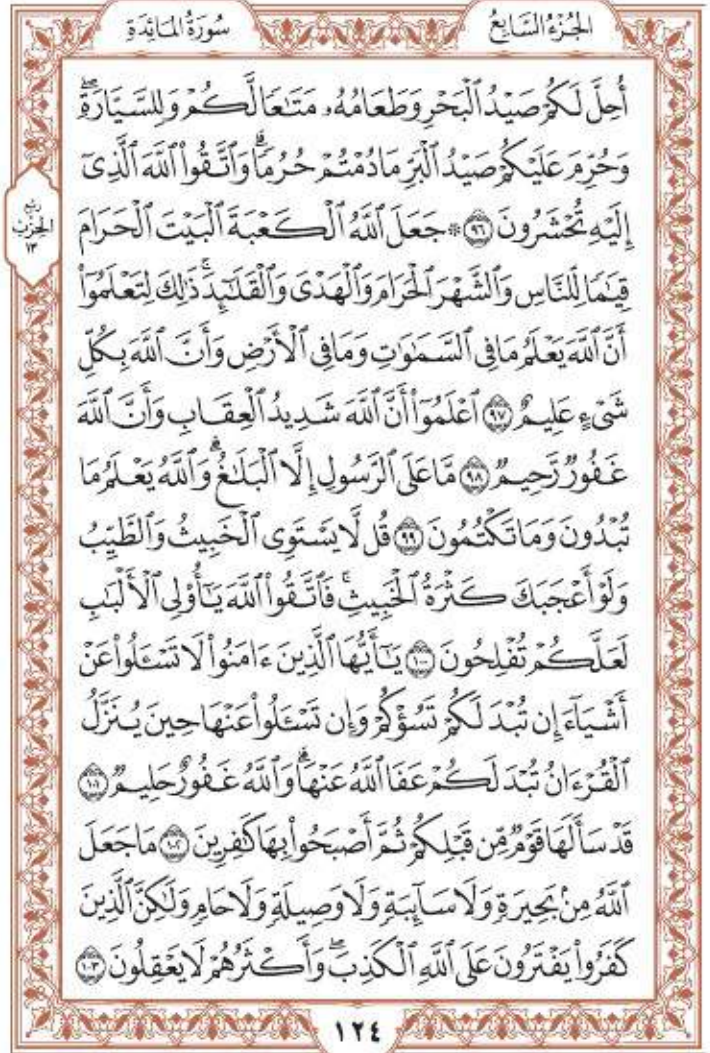 الجُزْءُ السَّابِعُ
سُورَةُ المَائِدَةِ
أُحِلَّ لَكُمۡ صَيۡدُ ٱلۡبَحۡرِ وَطَعَامُهُۥ مَتَٰعٗا لَّكُمۡ وَلِلسَّيَّارَةِۖ
وَحُرِّمَ عَلَيۡكُمۡ صَيۡدُ ٱلۡبَرِّ مَا دُمۡتُمۡ حُرُمٗاۗ وَٱتَّقُواْ ٱللَّهَ ٱلَّذِيٓ
إِلَيۡهِ تُحۡشَرُونَ ٩٦ ۞ جَعَلَ ٱللَّهُ ٱلۡكَعۡبَةَ ٱلۡبَيۡتَ ٱلۡحَرَامَ
قِيَٰمٗا لِّلنَّاسِ وَٱلشَّهۡرَ ٱلۡحَرَامَ وَٱلۡهَدۡيَ وَٱلۡقَلَٰٓئِدَۚ ذَٰلِكَ لِتَعۡلَمُوٓاْ
أَنَّ ٱللَّهَ يَعۡلَمُ مَا فِي ٱلسَّمَٰوَٰتِ وَمَا فِي ٱلۡأَرۡضِ وَأَنَّ ٱللَّهَ بِكُلِّ
شَيۡءٍ عَلِيمٌ ٩٧ ٱعۡلَمُوٓاْ أَنَّ ٱللَّهَ شَدِيدُ ٱلۡعِقَابِ وَأَنَّ ٱللَّهَ
غَفُورٞ رَّحِيمٞ ٩٨ مَّا عَلَى ٱلرَّسُولِ إِلَّا ٱلۡبَلَٰغُۗ وَٱللَّهُ يَعۡلَمُ مَا
تُبۡدُونَ وَمَا تَكۡتُمُونَ ٩٩ قُل لَّا يَسۡتَوِي ٱلۡخَبِيثُ وَٱلطَّيِّبُ
وَلَوۡ أَعۡجَبَكَ كَثۡرَةُ ٱلۡخَبِيثِۚ فَٱتَّقُواْ ٱللَّهَ يَٰٓأُوْلِي ٱلۡأَلۡبَٰبِ
لَعَلَّكُمۡ تُفۡلِحُونَ ١٠٠ يَٰٓأَيُّهَا ٱلَّذِينَ ءَامَنُواْ لَا تَسۡـَٔلُواْ عَنۡ
أَشۡيَآءَ إِن تُبۡدَ لَكُمۡ تَسُؤۡكُمۡ وَإِن تَسۡـَٔلُواْ عَنۡهَا حِينَ يُنَزَّلُ
ٱلۡقُرۡءَانُ تُبۡدَ لَكُمۡ عَفَا ٱللَّهُ عَنۡهَاۗ وَٱللَّهُ غَفُورٌ حَلِيمٞ ١٠١
قَدۡ سَأَلَهَا قَوۡمٞ مِّن قَبۡلِكُمۡ ثُمَّ أَصۡبَحُواْ بِهَا كَٰفِرِينَ ١٠٢ مَا جَعَلَ
ٱللَّهُ مِنۢ بَحِيرَةٖ وَلَا سَآئِبَةٖ وَلَا وَصِيلَةٖ وَلَا حَامٖ وَلَٰكِنَّ ٱلَّذِينَ
كَفَرُواْ يَفۡتَرُونَ عَلَى ٱللَّهِ ٱلۡكَذِبَۖ وَأَكۡثَرُهُمۡ لَا يَعۡقِلُونَ ١٠٣
ربع
الحزب
١٣
١٢٤